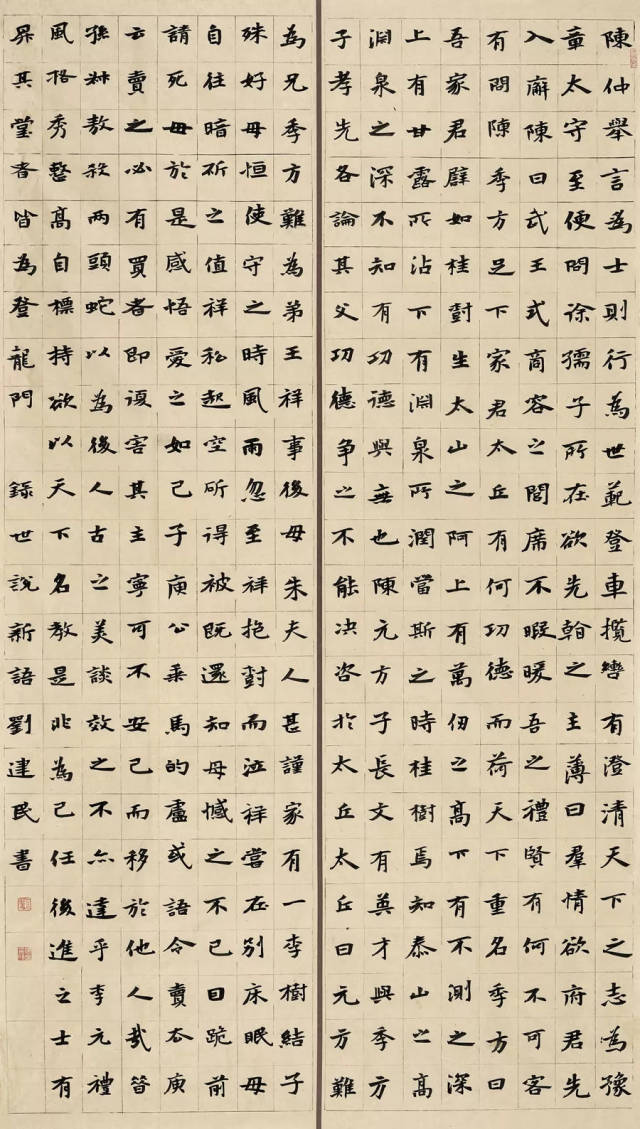 陳仲舉言為士則行為世範登車攬轡有澄清天下之志為豫
章太守至便問徐孺子所在欲先之主薄曰羣情欲府君先
入廨陳曰武王式商容之閭席不暇暖吾之禮賢有何不可客
有問陳季方足下家君太丘有何功德而荷天下重名季方曰
吾家君譬如桂樹生太山之阿上有萬仞之高下有不測之深
上有甘露所沾下有淵泉所潤當斯之時桂樹焉知泰山之高
淵泉之深不知有功德與無也陳元方子長文有英才與季方
子孝先各論其父功德爭之不能決咨於太丘太丘曰元方難
為兄季方難為弟王祥事後母朱夫人甚謹家有一李樹結子
殊好母恒使守之時風雨忽至祥抱樹而泣祥嘗在別床眠母
自往暗斫之值祥私起空斫得被既還知母憾之不已因跪前
請死母於是感悟愛之如己子庾公乘馬的盧或語令賣去庾
云賣之必有買者即復害其主寧可不安己而移於他人哉昔
孫叔敖殺兩頭蛇以為後人古之美談效之不亦達乎李元禮
風格秀整高自標持欲以天下名教是非為己任後進之士有
昇其堂者皆為登龍門 錄世說新語劉建民書